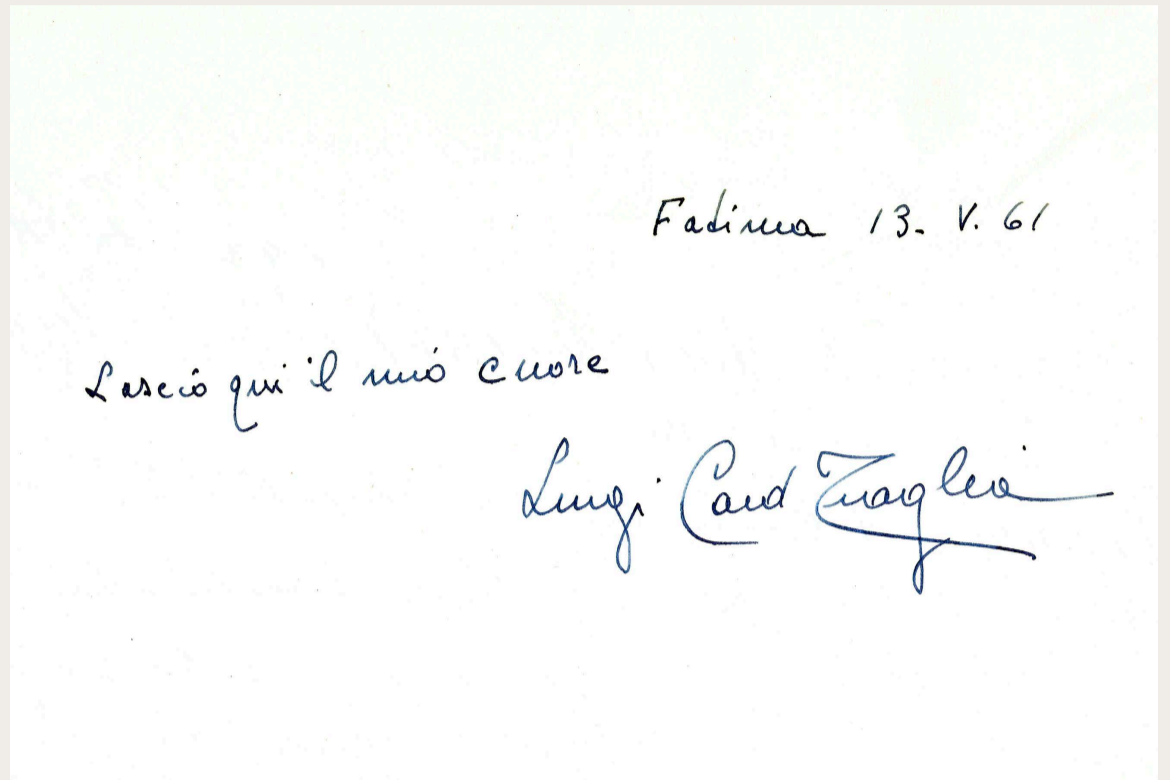 Fatima 13. V. 61
Lascio qui il mio cuore
Luigi Card Traglia